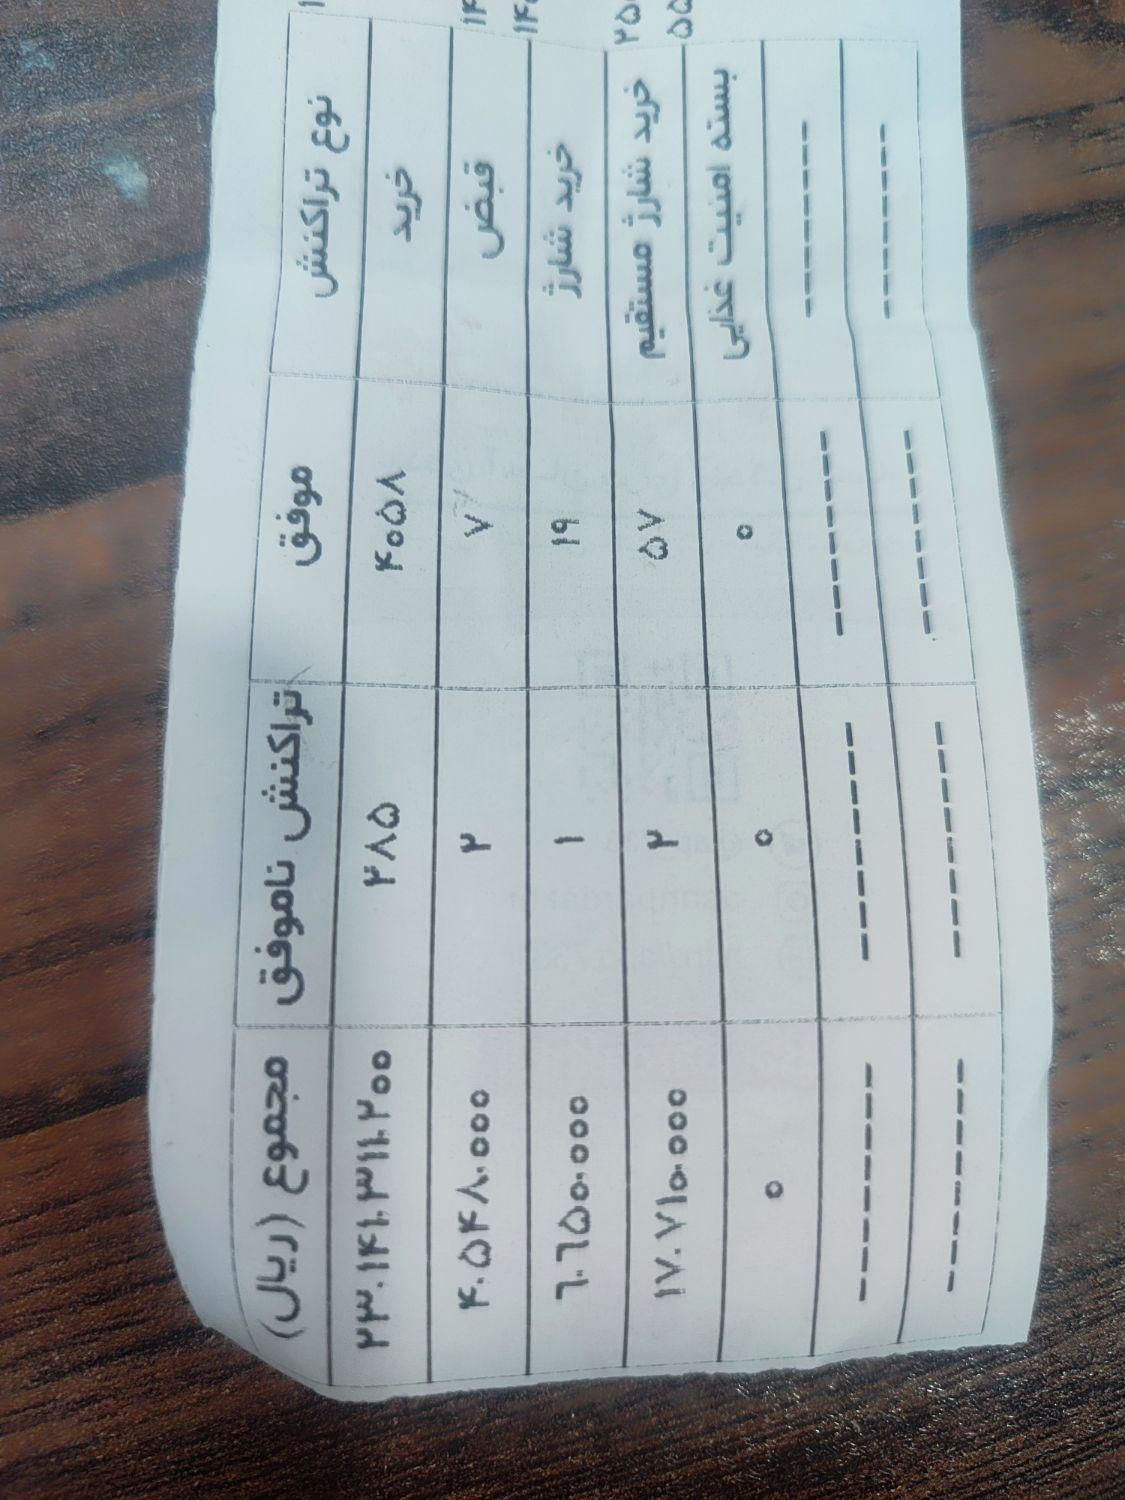 نوع تراکنش موفق تراکنش ناموفق مجموع (ریال)
خرید ۴۰۵۸ ۲۸۵ ۲۳.۱۴۱.۳۱۱.۲۰۰
قبض ۷ ۲ ۴.۵۴۸.۰۰۰
خرید شارژ ۱۹ ۱ ۶.۶۵۰.۰۰۰
خرید شارژ مستقیم ۵۷ ۲ ۱۷.۷۱۰.۰۰۰
بسته امنیت غذایی ۰ ۰ ۰
-------- --------- ---------- ----------
-------- --------- ---------- ----------